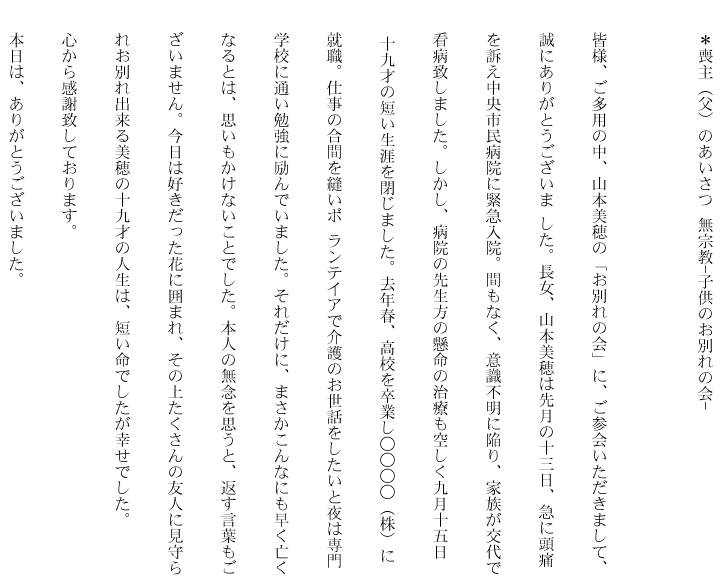 ＊喪主（父）のあいさつ 無宗教−子供のお別れの会−
皆様、ご多用の中、山本美穂の「お別れの会」に、ご参会いただきまして、
誠にありがとうございま した。長女、山本美穂は先月の十三日、急に頭痛
を訴え中央市民病院に緊急入院。間もなく、意識不明に陥り、家族が交代で
看病致しました。しかし、病院の先生方の懸命の治療も空しく九月十五日
十九才の短い生涯を閉じました。去年春、高校を卒業し〇〇〇〇（株）に
就職。仕事の合間を縫いボ ランテイアで介護のお世話をしたいと夜は専門
学校に通い勉強に励んでいました。それだけに、まさかこんなにも早く亡く
なるとは、思いもかけないことでした。本人の無念を思うと、返す言葉もご
ざいません。今日は好きだった花に囲まれ、その上たくさんの友人に見守ら
れお別れ出来る美穂の十九才の人生は、短い命でしたが幸せでした。
心から感謝致しております。
本日は、ありがとうございました。